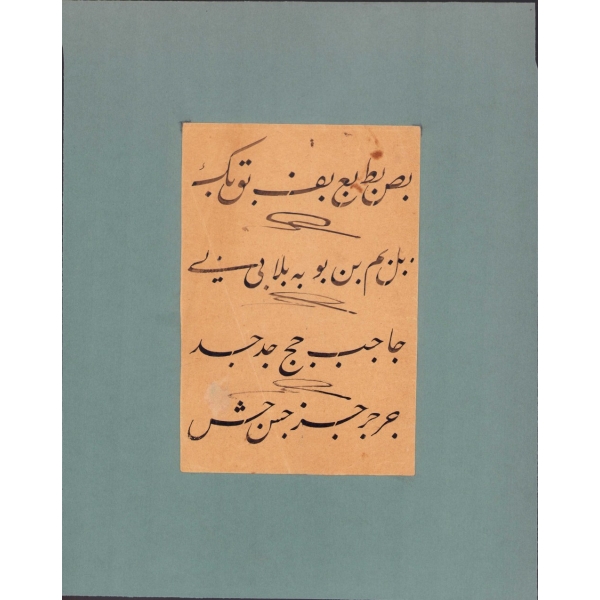 بص بط بع بف بق بک
بل بم بن بو به بلا بی بے
جا جب جج جد جـد
جر جر جز جس جش